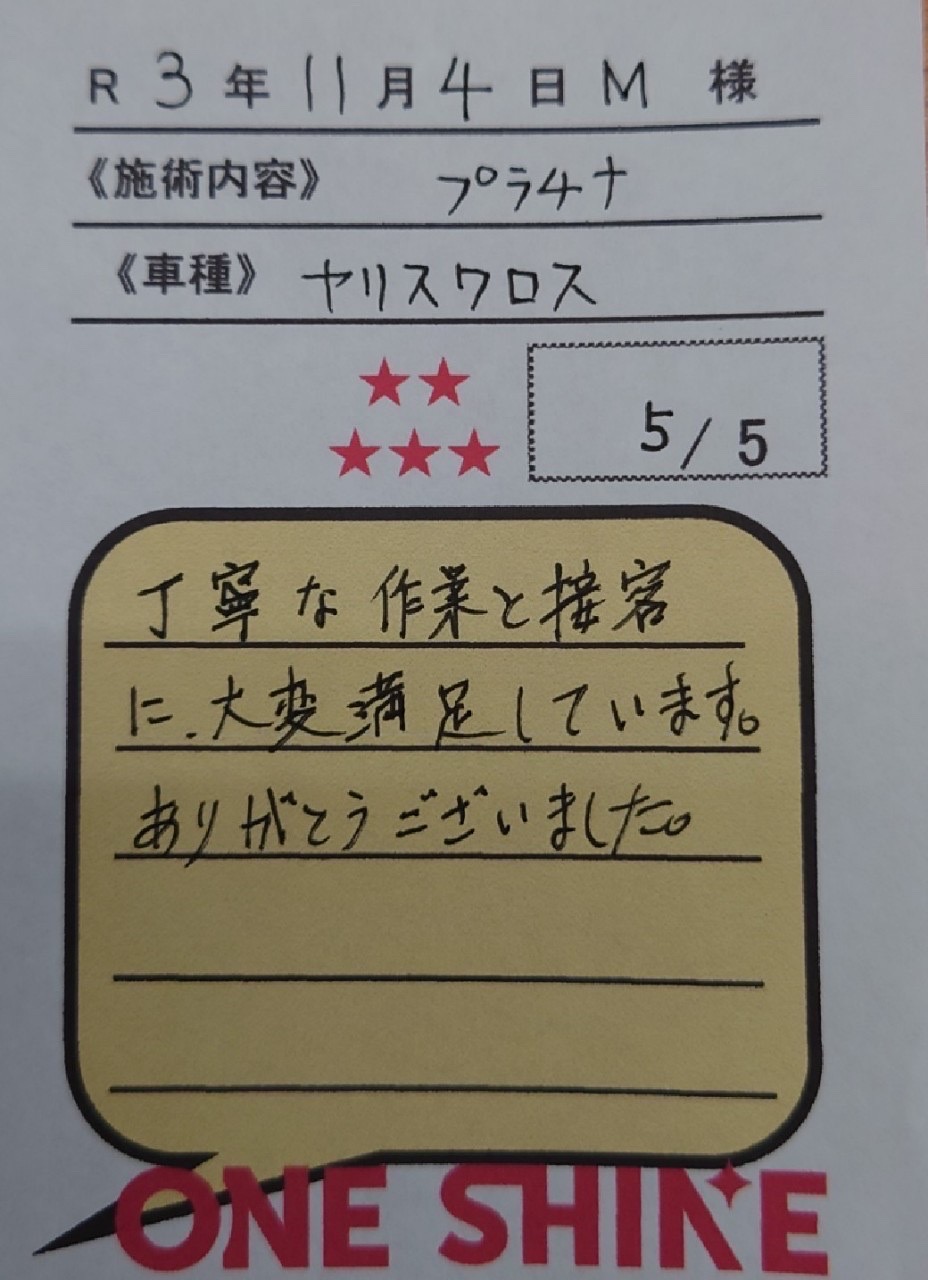 R 3年 11月 4日 M 様
《施術内容》 プラチナ
《車種》 ヤリスクロス
5/5
丁寧な作業と接客
に、大変満足しています。
ありがとうございました。
ONE SHINE